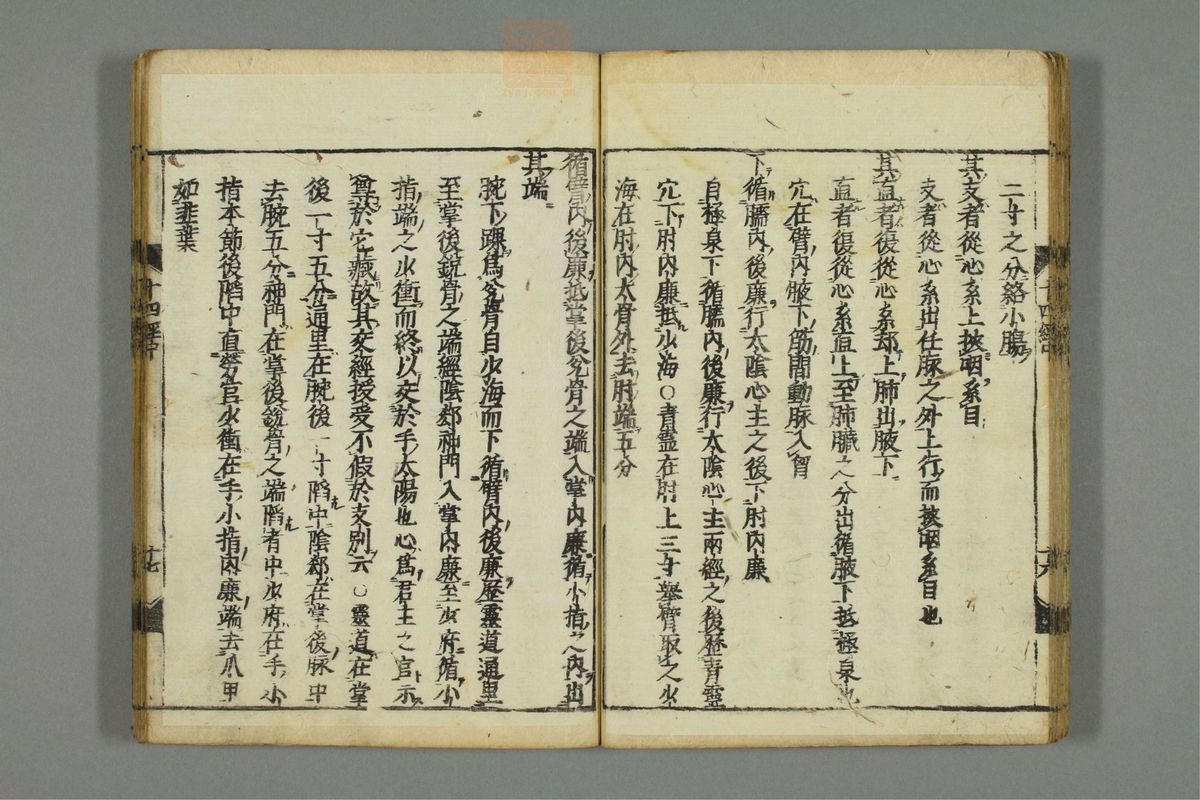 二寸之分絡小腸
其支者從心系上挾咽系目
支者從心系出任脉之外上行而挾咽系目也
其直者復從心系却上肺出腋下
直者復從心系直上至肺臟之分出循腋下抵極泉也
穴在臂內腋下筋間動脉入胷
下循臑內後廉行太陰心主之後下肘內廉
自極泉下循臑內後廉行太陰心主兩經之後歷青靈
穴下肘內廉抵少海○青靈在肘上三寸舉臂取之少
海在肘內大骨外去肘端五分
十六
循臂內後廉抵掌後兌骨之端入掌內廉循小指之內出
其端
腕下踝爲兌骨自少海而下循臂內後廉歷靈道通里
至掌後銳骨之端經陰郄神門入掌內廉至少府循小
指端之少衝而終以交於手太陽也心爲君主之官示
尊於它藏故其交經授受不假於支別云○靈道在掌
後一寸五分通里在腕後一寸陷中陰郄在掌後脉中
去腕五分神門在掌後銳骨之端陷者中少府在手小
指本節後陷中直勞宮少衝在手小指內廉端去爪甲
如韭葉
十四經中
十七